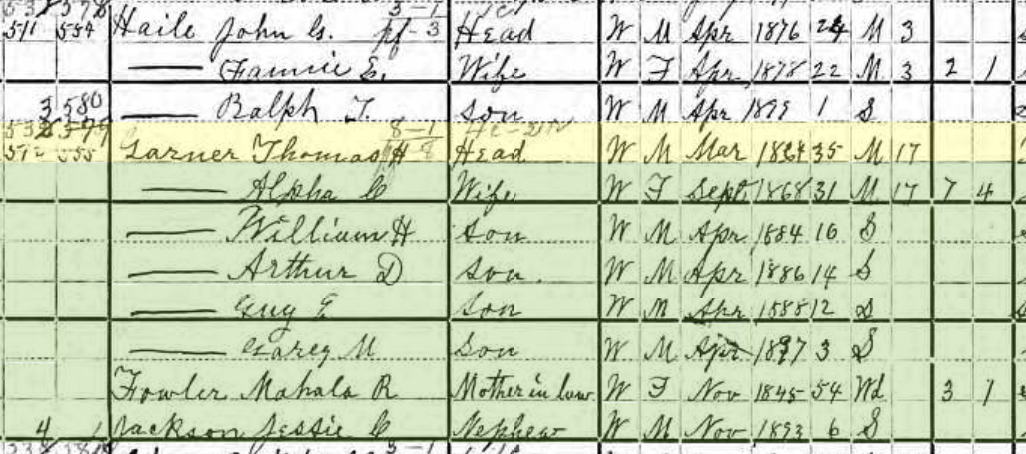 511 554 Haile John G. Head W M Apr 1876 24 M 3
— Fannie E. Wife W F Apr 1878 22 M 3 2 1
3 580 — Ralph T. Son W M Apr 1899 1 S
512 555 Garner Thomas H Head W M Mar 1864 35 M 17
— Alpha C Wife W F Sept 1868 31 M 17 7 4
— William H Son W M Apr 1884 16 S
— Arthur D Son. W M Apr 1886 14 S
— Guy E Son W M Apr 1888 12 S
— Carey M Son W M Apr 1897 3 S
Fowler Mahala R Mother in law W F Nov 1845 54 Wd 3 1
4 Jackson Jessie C Nephew W M Nov 1893 6 S